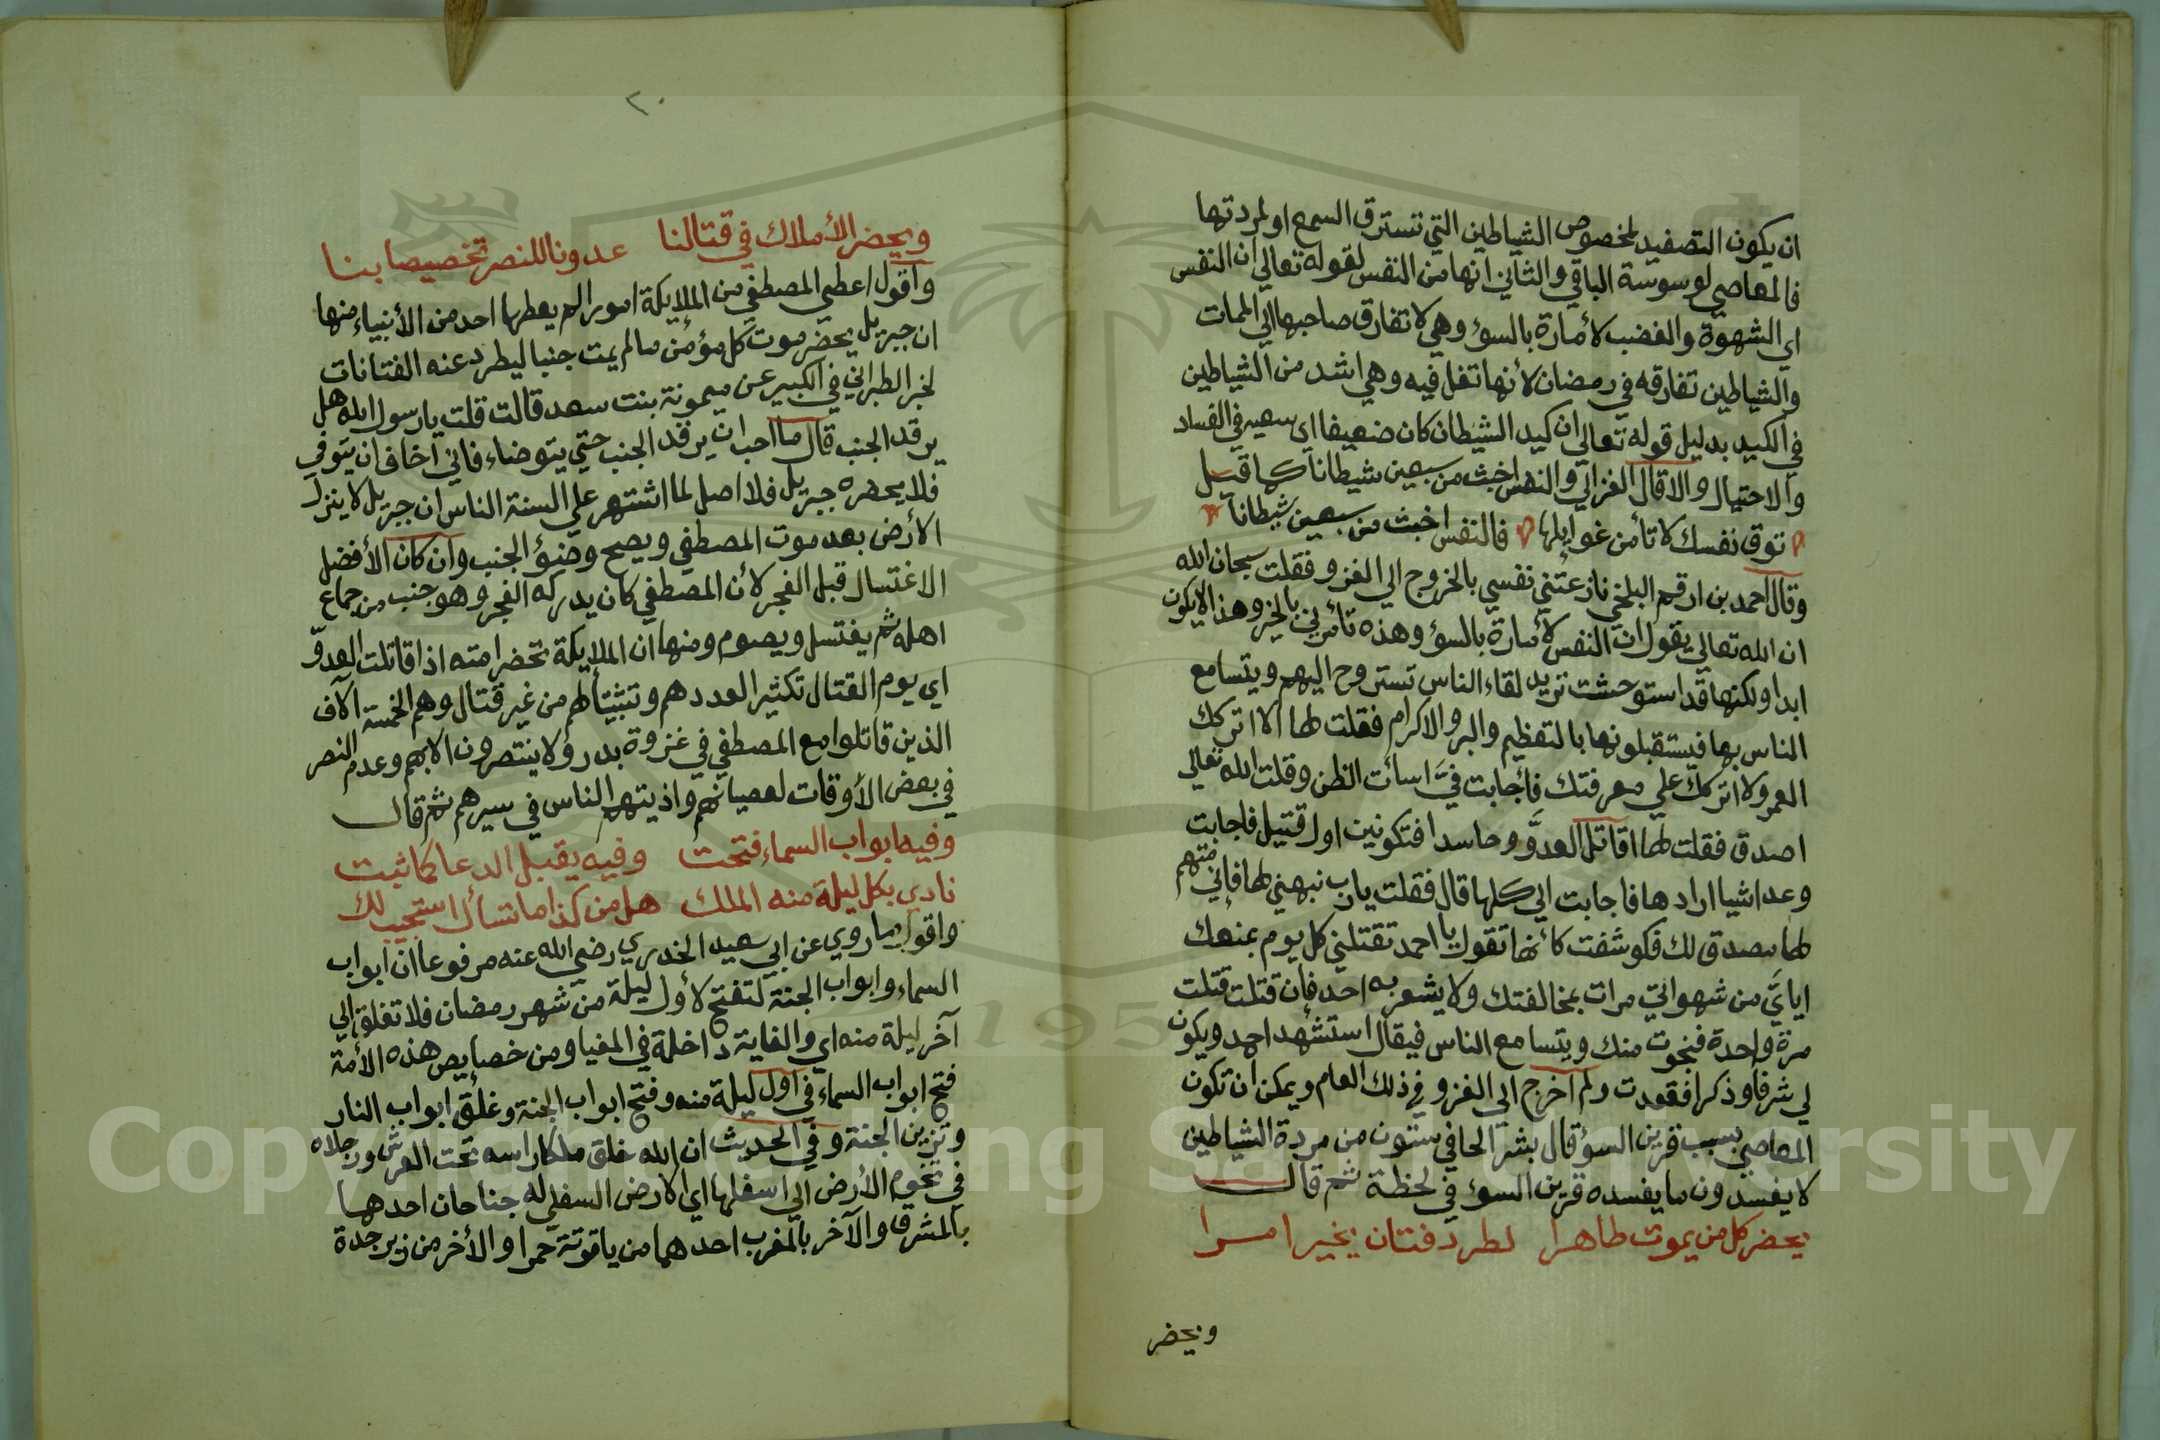 ان يكون التصفيد لمخصوص الشياطين التي تسترق السمع او لمردتها
فالمعاصي لوسوسة الباقي والثاني انها من النفس لقوله تعالي ان النفس
اي الشهوة والغضب لأمارة بالسؤ وهي لا تفارق صاحبها الي الممات
والشياطين تفارقه في رمضان لأنها تغل فيه وهي اشد من الشياطين
في الكيد بدليل قوله تعالي ان كيد الشيطان كان ضعيفا اي سعيه في الفساد
والاحتيال والا قال الغزالي والنفس اخبث من سبعين شيطانا كما قيل
توق نفسك لا تأمن غوايلها فالنفس اخبث من سبعين شيطانا
وقال احمد بن ارقم البلخي نازعتني نفسي بالخروج الي الغزو فقلت سبحان الله
ان الله تعالي يقول ان النفس لأمارة بالسؤ وهذه تأمرني بالخير وهذا لا يكون
ابدا ولكنها قد استوحشت تريد لقاء الناس تستروح اليهم ويتسامع
الناس بها فيستقبلونها بالتعظيم والبر والاكرام فقلت لها الا اتركك
العمر ولا اتركك علي معرفتك فأجابت في اسأت الظن وقلت الله تعالي
اصدق فقلت لها اقاتل العدو وحاسدا فتكونين اول قتيل فاجابت
وعد اشيا ارادها فاجابت الي كلها قال فقلت يارب نبهني لها فإني متهم
لها مصدق لك فكوشفت كأنها تقول يا احمد تقتلني كل يوم بمنعك
اياي من شهواتي مرات بمخالفتك ولا يشعر به احد فإن قتلت قتلت
مرة واحدة فنجوت منك ويتسامع الناس فيقال استشهد احمد ويكون
لي شرفا وذكرا فقعدت ولم اخرج الي الغزو في ذلك العام ويمكن ان تكون
المعاصي بسبب قرين السؤ قال بشر الحافي ستون من مردة الشياطين
لا يفسدون ما يفسده قرين السؤ في لحظة ثم قال
يحضر كل من يموت طاهرا لطرد فتان بخير امرا
ويحضر
٢٠
ويحضر الأملاك في قتالنا عدونا للنصر تخصيصا بنا
واقول اعطي المصطفي من الملايكة امورا لم يعطها احد من الأنبياء منها
ان جبريل يحضر موت كل مؤمن ما لم يمت جنبا ليطرد عنه الفتانات
لخبر الطبراني في الكبير عن ميمونة بنت سعد قالت قلت يا رسول الله هل
يرقد الجنب قال ما احب ان يرقد الجنب حتي يتوضاء فاني اخاف ان يتوفي
فلا يحضره جبريل فلا اصل لما اشتهر علي السنة الناس ان جبريل لا ينزل
الأرض بعد موت المصطفي ويصح وضؤ الجنب وان كان الأفضل
الاغتسال قبل الفجر لأن المصطفي كان يدركه الفجر وهو جنب من جماع
اهله ثم يغتسل ويصوم ومنها ان الملايكة تحضر امته اذا قاتلت العدو
اي يوم القتال تكثيرا لعددهم وتثبيتا لهم من غير قتال وهم الخمسة الآف
الذين قاتلوا مع المصطفي في غزوة بدر ولا ينتصرون الا بهم وعدم النصر
في بعض الأوقات لعصيانهم واذيتهم الناس في سيرهم ثم قال
وفيه ابواب السماء فتحت وفيه يقبل الدعا كما ثبت
نادي بكل ليلة منه الملك هل من كذا ما تسأل استجيب لك
واقول ما روي عن ابي سعيد الخدري رضي الله عنه مرفوعا ان ابواب
السماء وابواب الجنة لتفتح لأول ليلة من شهر رمضان فلا تغلق الي
آخر ليلة منه اي والغاية داخلة في المغيا ومن خصايص هذه الأمة
فتح ابواب السماء في اول ليلة منه وفتح ابواب الجنة وغلق ابواب النار
وتزين الجنة وفي الحديث ان الله خلق ملكا راسه تحت العرش ورجلاه
في تخوم الأرض الي اسفلها اي الارض السفلي له جناحان احدهما
بالمشرق والآخر بالمغرب احدهما من ياقوتة حمرا والأخر من زبرجدة